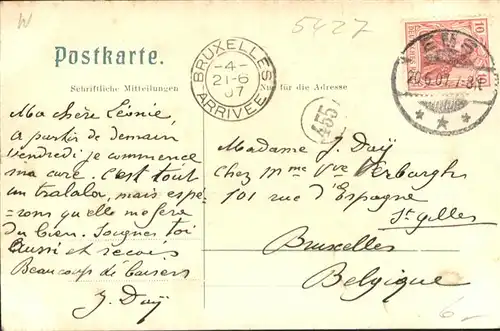 W
5427
Postkarte.
Schriftliche Mitteilungen
Nur für die Adresse
BRUXELLES
-4-
21-6
07
ARRIVEE
10 10
EMS
20.6.07. 7-8N
455
Ma chère Léonie,
a partir de demain
Vendredi je commence
ma cure. C'est tout
un tralala, mais espé-
=rons qu'elle me fera
du bien. Soignes toi
aussi et reçois
Beaucoup de baisers
J. Daÿ
Madame J. Daÿ
Chez Mme Vve Verburgh
101 rue d'Espagne
St Gilles
Bruxelles
Belgique
6-